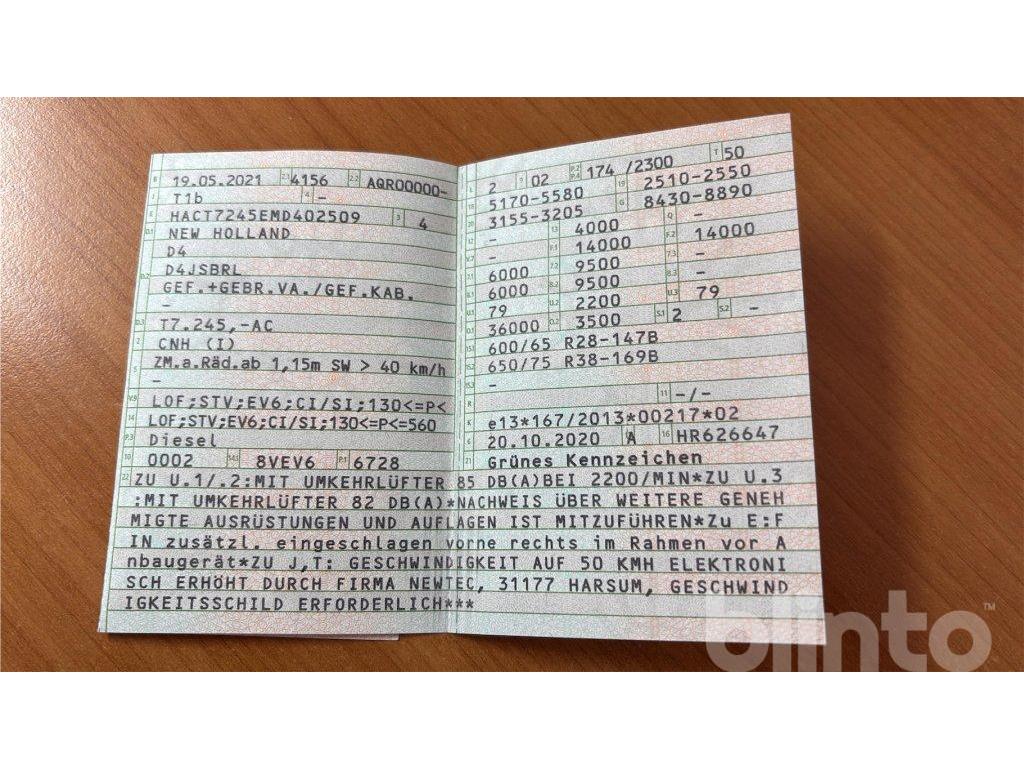 B 19.05.2021 2.1 4156 2.2 AQR00000-
J T1b 4 -
E HACT7245EMD402509 3 4
D.1 NEW HOLLAND
D4
D.2 D4JSBRL
GEF.+GEBR.VA./GEF.KAB.
-
D.3 T7.245,-AC
2 CNH (I)
5 ZM.a.Räd.ab 1,15m SW > 40 km/h
-
V.9 LOF;STV;EV6;CI/SI;130<=P<
14 LOF;STV;EV6;CI/SI;130<=P<=560
P.3 Diesel
10 0002 14.1 8VEV6 P.1 6728
L 2 9 02 P.2 P.4 174 /2300 T 50
18 5170-5580 19 2510-2550
20 3155-3205 G 8430-8890
12 - 13 4000 Q -
V.7 - F.1 14000 F.2 14000
7.1 6000 7.2 9500 7.3 -
8.1 6000 8.2 9500 8.3 -
U.1 79 U.2 2200 U.3 79
O.1 36000 O.2 3500 S.1 2 S.2 -
15.1 600/65 R28-147B
15.2 650/75 R38-169B
15.3 -
R 11 -/-
K e13*167/2013*00217*02
6 20.10.2020 17 A 16 HR626647
21 Grünes Kennzeichen
22 ZU U.1/.2:MIT UMKEHRLÜFTER 85 DB(A)BEI 2200/MIN*ZU U.3
:MIT UMKEHRLÜFTER 82 DB(A)*NACHWEIS ÜBER WEITERE GENEH
MIGTE AUSRÜSTUNGEN UND AUFLAGEN IST MITZUFÜHREN*Zu E:F
IN zusätzl. eingeschlagen vorne rechts im Rahmen vor A
nbaugerät*ZU J,T: GESCHWINDIGKEIT AUF 50 KMH ELEKTRONI
SCH ERHÖHT DURCH FIRMA NEWTEC, 31177 HARSUM, GESCHWIND
IGKEITSSCHILD ERFORDERLICH***
blinto™